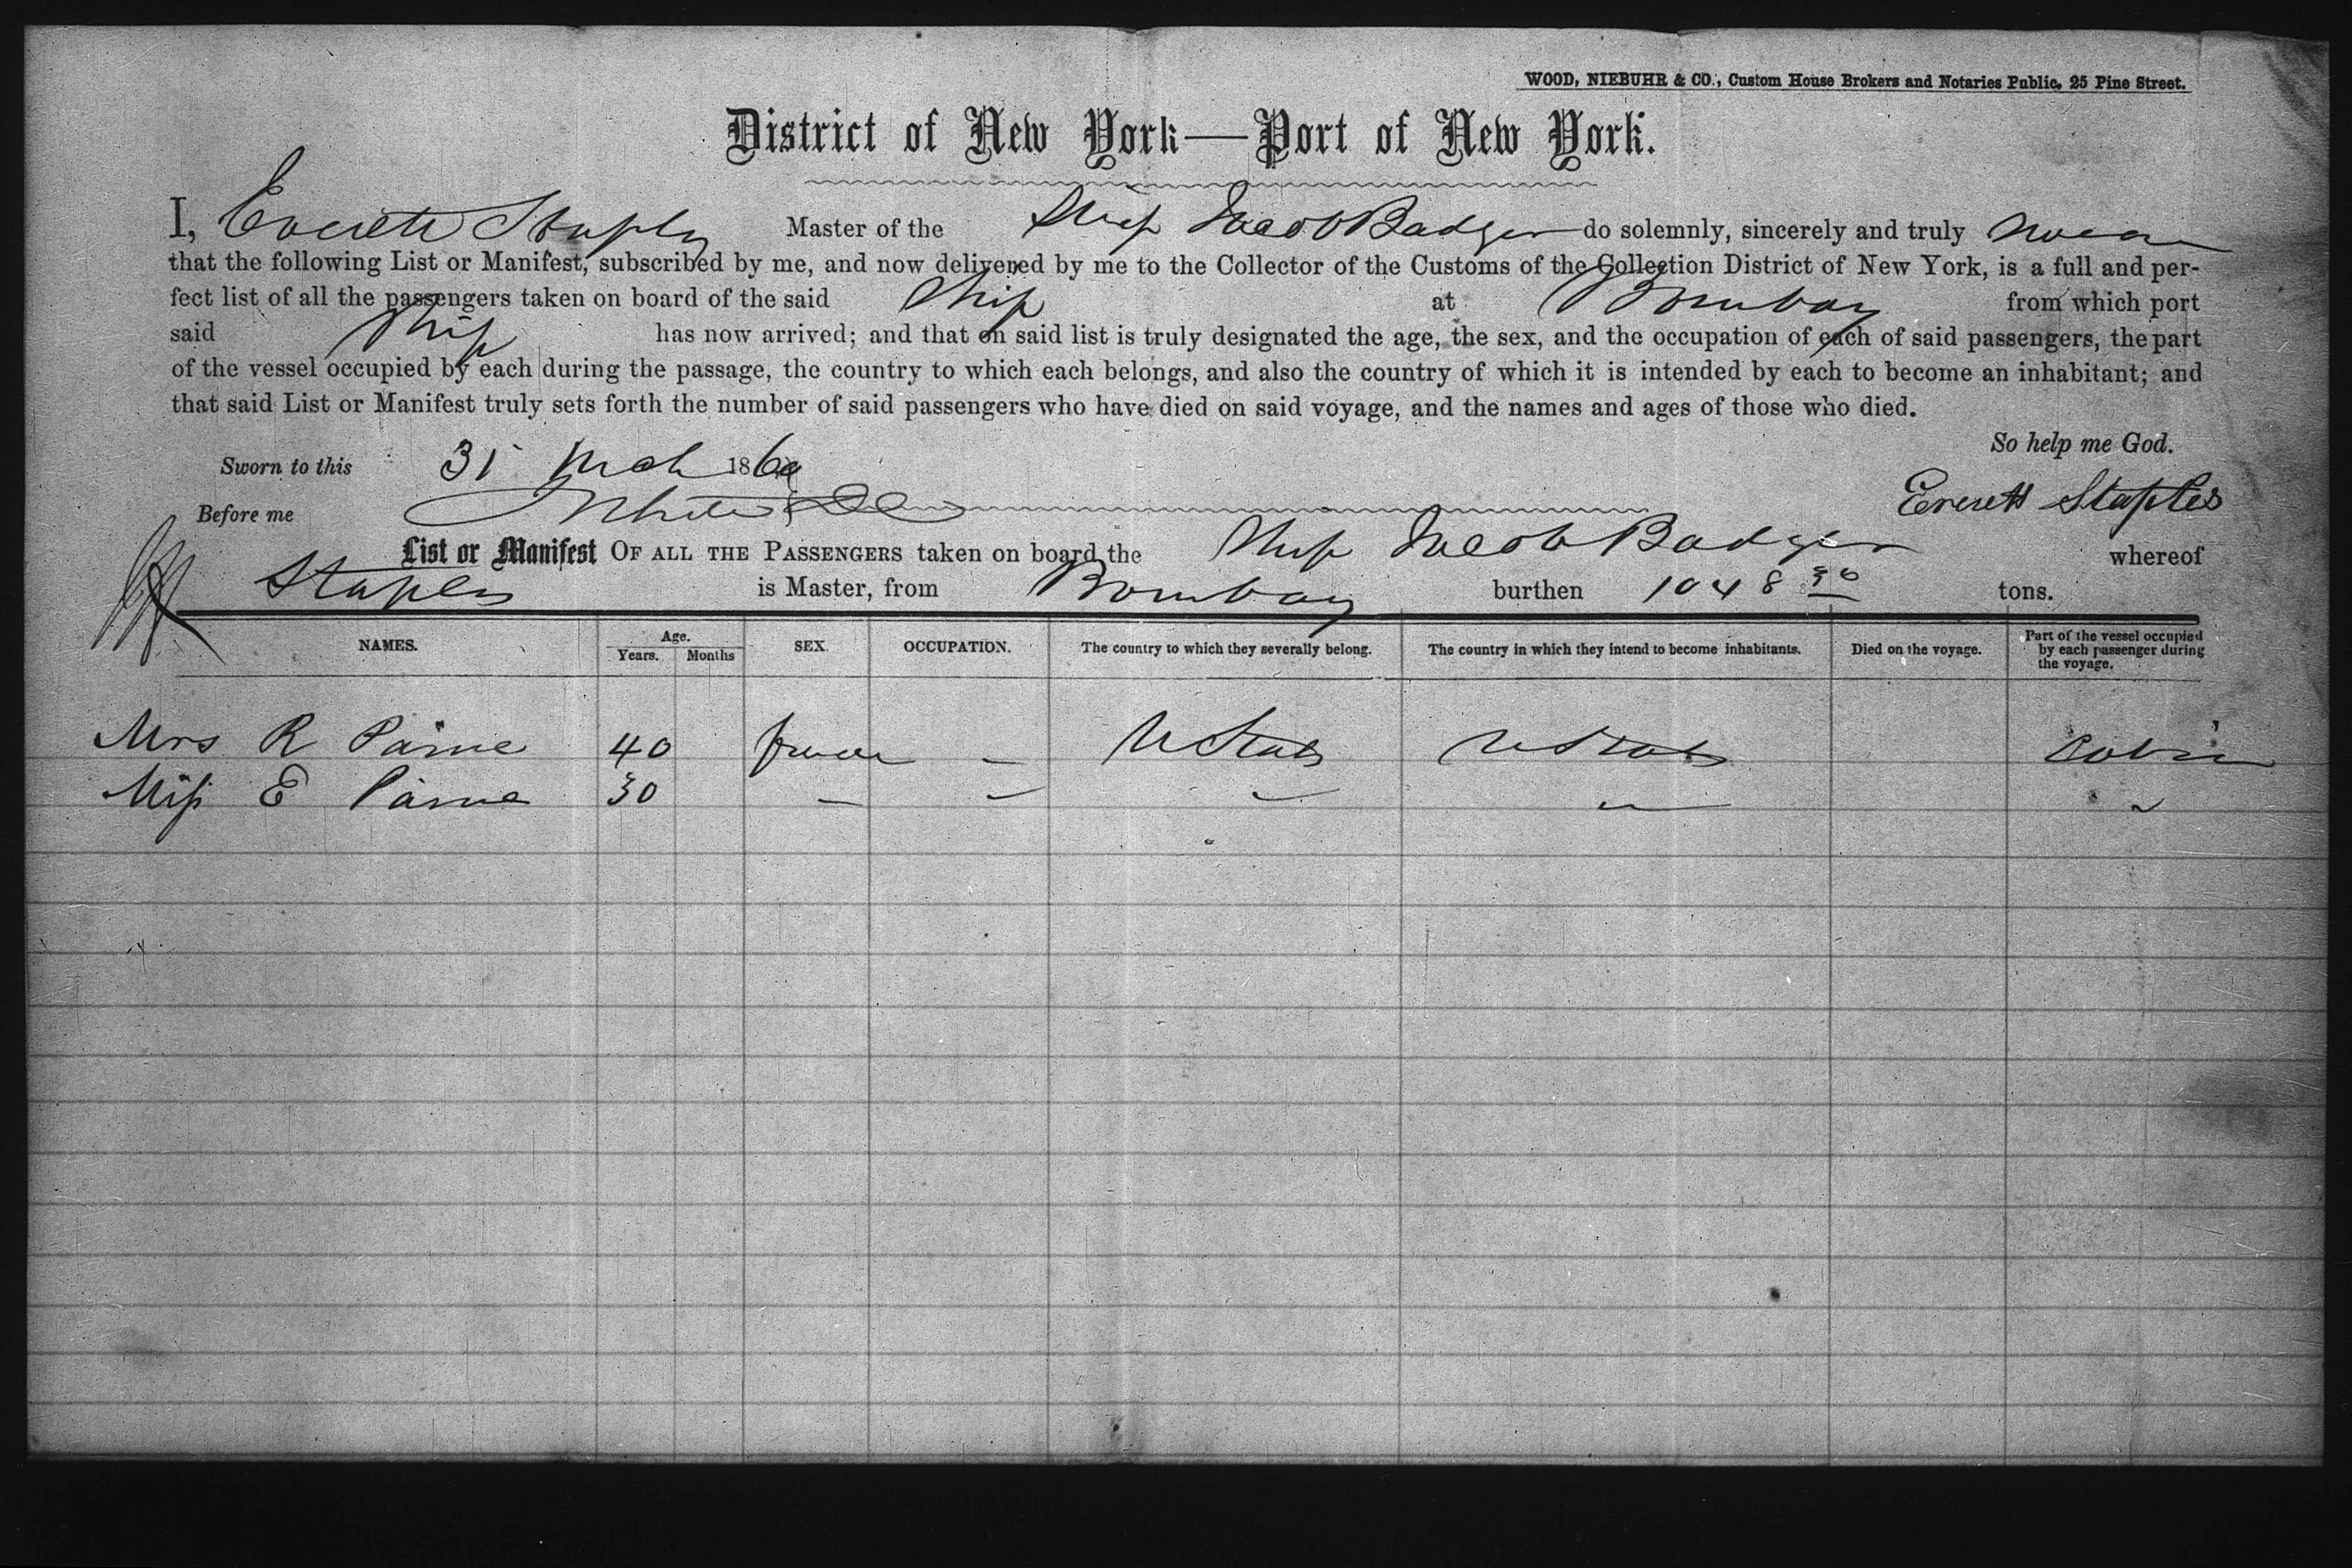 WOOD, NIEBUHR & CO., Custom House Brokers and Notaries Public, 25 Pine Street.
District of New York—Port of New York.
I, Everett Staples Master of the Ship Jacob Badger do solemnly, sincerely and truly swear
that the following List or Manifest, subscribed by me, and now delivered by me to the Collector of the Customs of the Collection District of New York, is a full and per-
fect list of all the passengers taken on board of the said Ship at Bombay from which port
said Ship has now arrived; and that on said list is truly designated the age, the sex, and the occupation of each of said passengers, the part
of the vessel occupied by each during the passage, the country to which each belongs, and also the country of which it is intended by each to become an inhabitant; and
that said List or Manifest truly sets forth the number of said passengers who have died on said voyage, and the names and ages of those who died.
So help me God.
Sworn to this 31 Mch 186
Before me Everett Staples
List or Manifest OF ALL THE PASSENGERS taken on board the Ship Jacob Badger whereof
Staples is Master, from Bombay burthen 1048 tons.
NAMES. Age. Years. Months SEX. OCCUPATION. The country to which they severally belong. The country in which they intend to become inhabitants. Died on the voyage. Part of the vessel occupied by each passenger during the voyage.
Mrs R Paine 40 — U States U States Cabin
Miss E Paine 30 — — — — "